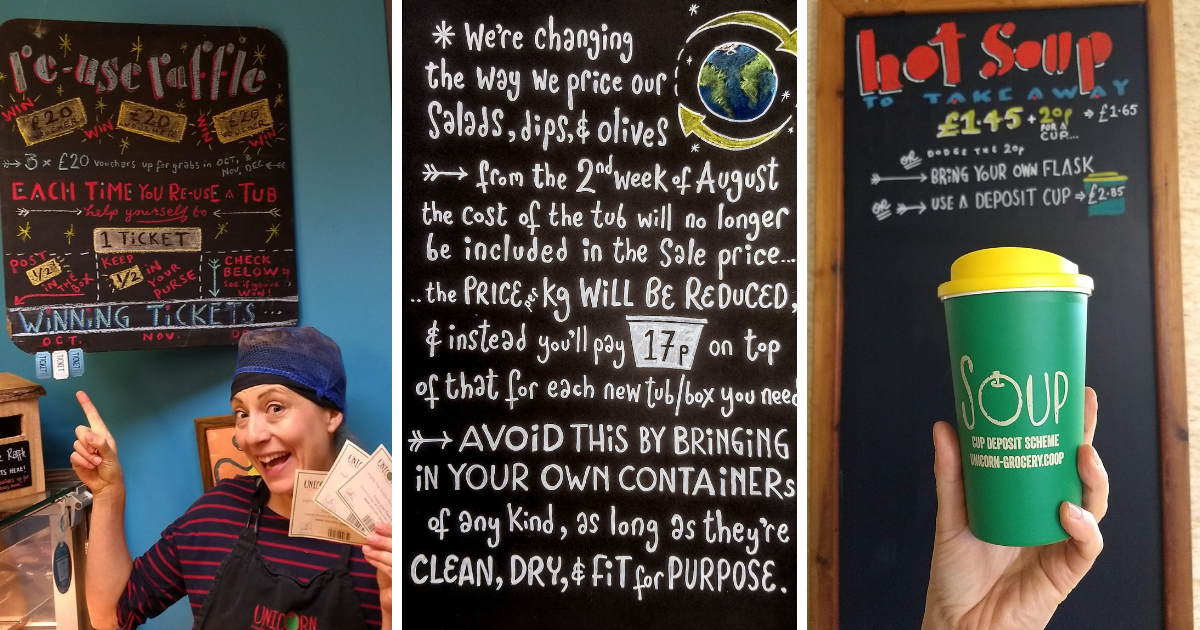 re-use raffle
WIN £20 VOUCHER WIN £20 VOUCHER WIN £20 VOUCHER WIN
3 x £20 vouchers up for grabs in OCT, NOV, DEC
EACH TIME YOU RE-USE A TUB
help yourself to
1 TICKET
POST 1/2 IN THE BOX
KEEP 1/2 IN YOUR PURSE
CHECK BELOW to see if you've WON!
WINNING TICKETS...
OCT. NOV.
TICKET TICKET TICKET
UNICORN
* We're changing
the way we price our
Salads, dips, & olives
from the 2nd week of August
the cost of the tub will no longer
be included in the Sale price...
..the PRICE per kg WILL BE REDUCED,
& instead you'll pay 17p on top
of that for each new tub/box you need
AVOID THIS BY BRINGING
IN YOUR OWN CONTAINERS
of any kind, as long as they're
CLEAN, DRY, & FIT for PURPOSE.
hot Soup
TO TAKEAWAY
£1.45 + 20p FOR A CUP... £1.65
OR DODGE THE 20p
BRING YOUR OWN FLASK
OR USE A DEPOSIT CUP £2.85
SOUP
CUP DEPOSIT SCHEME
UNICORN-GROCERY.COOP